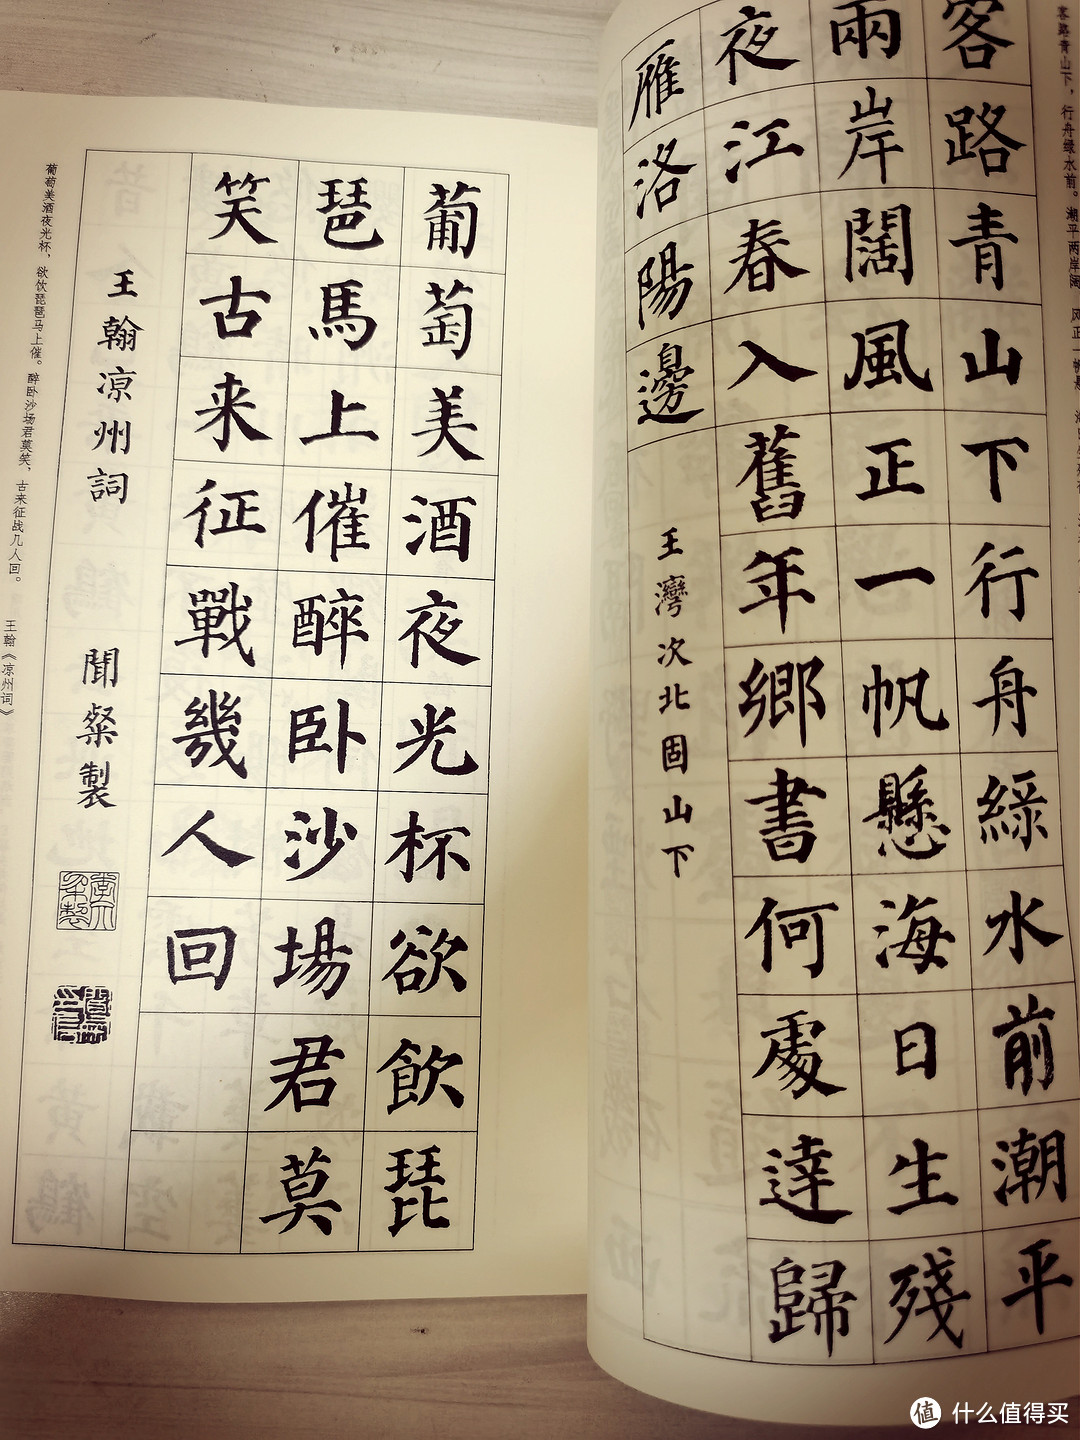 客路青山下，行舟绿水前。潮平两岸阔，风正一帆悬。
客路青山下行舟綠水前潮平
兩岸闊風正一帆懸海日生殘
夜江春入舊年鄉書何處達歸
雁洛陽邊
王灣次北固山下
葡萄美酒夜光杯欲飲琵
琶馬上催醉卧沙場君莫
笑古来征戰幾人回
王翰凉州詞 聞粲製
葡萄美酒夜光杯，欲饮琵琶马上催。醉卧沙场君莫笑，古来征战几人回。
王翰《凉州词》
值 什么值得买